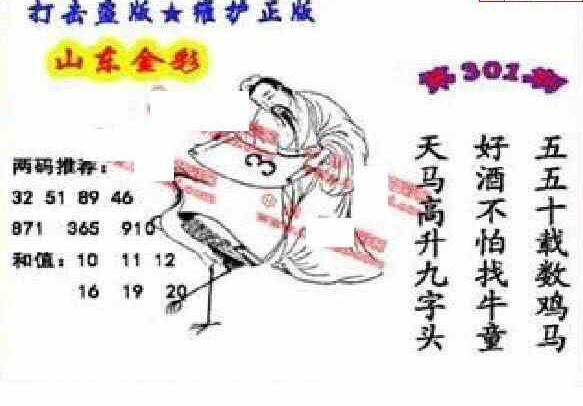 打击盗版★维护正版
山东金彩
301
两码推荐:
32 51 89 46
871 365 910
和值:10 11 12
16 19 20
3
五五十载数鸡马
好酒不怕找牛童
天马高升九字头